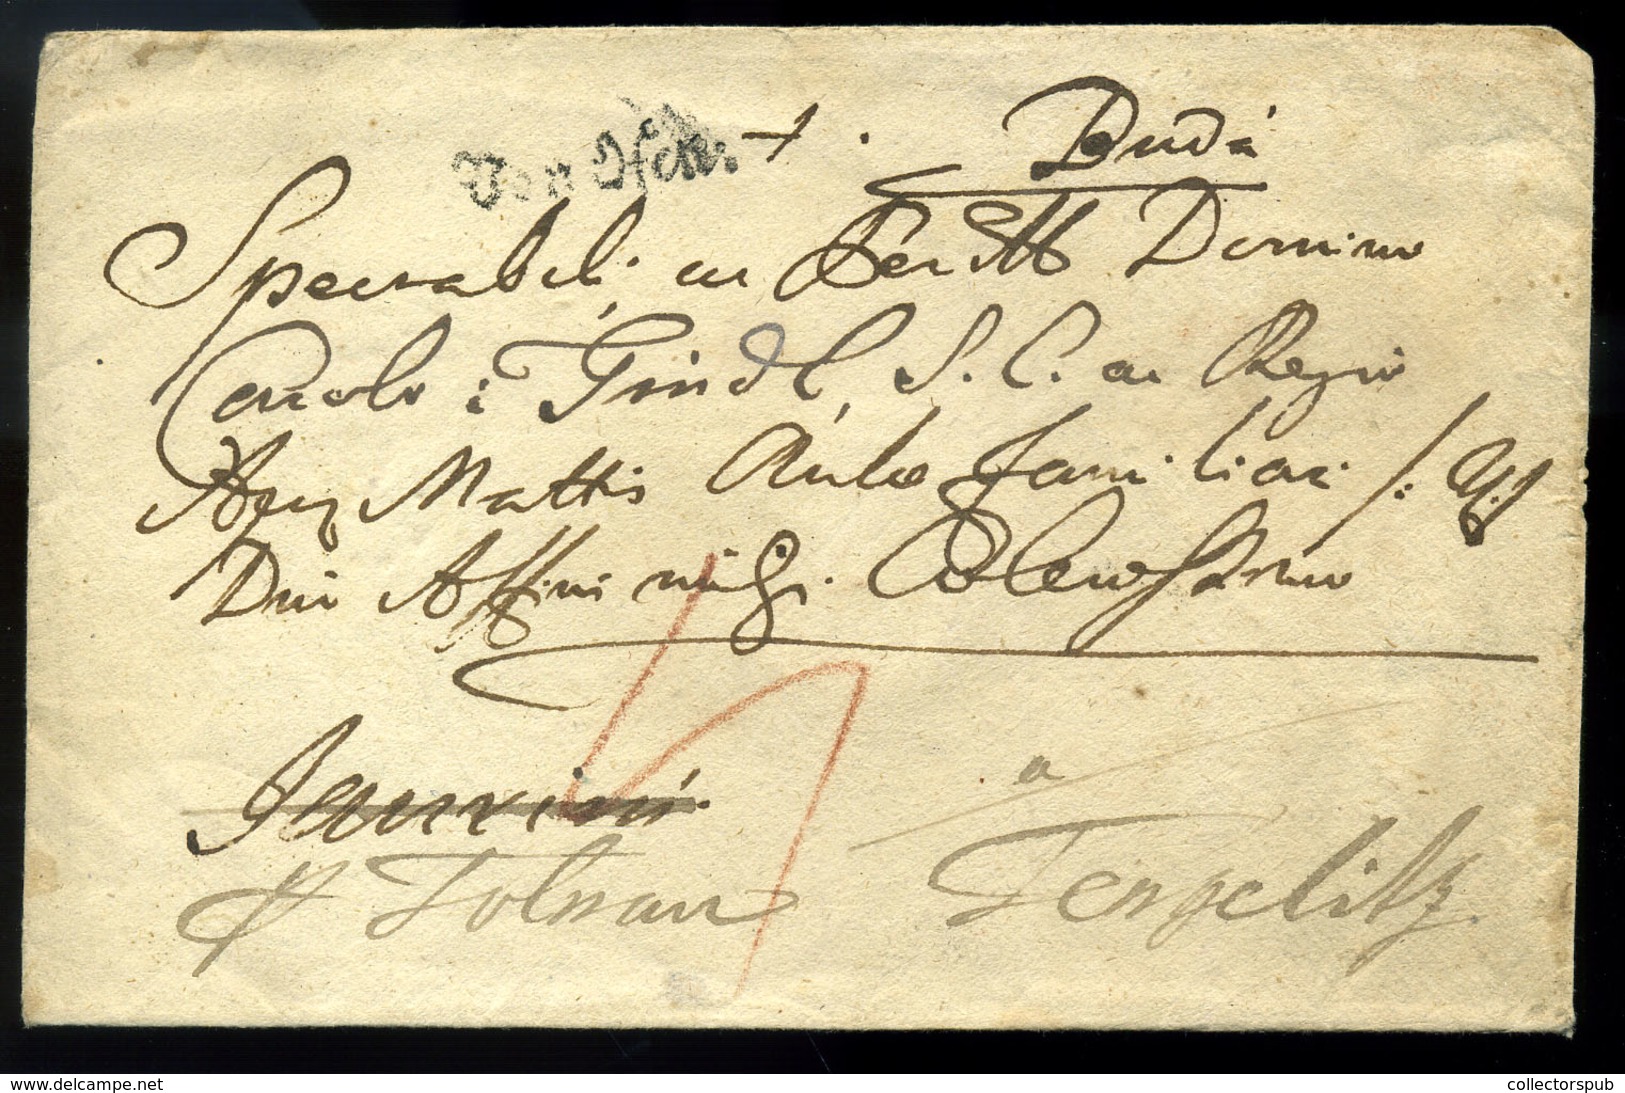 Von Ofen.
Buda
Spectabili ac Perill Domino
Carolo : Gindl, S. C. ac Regio
Mattis Aulae Familiari /: Tit
Dno Affini mihi Colendissimo
Jaurini
p Tolnau a Tengelitz
www.delcampe.net
collectorspub